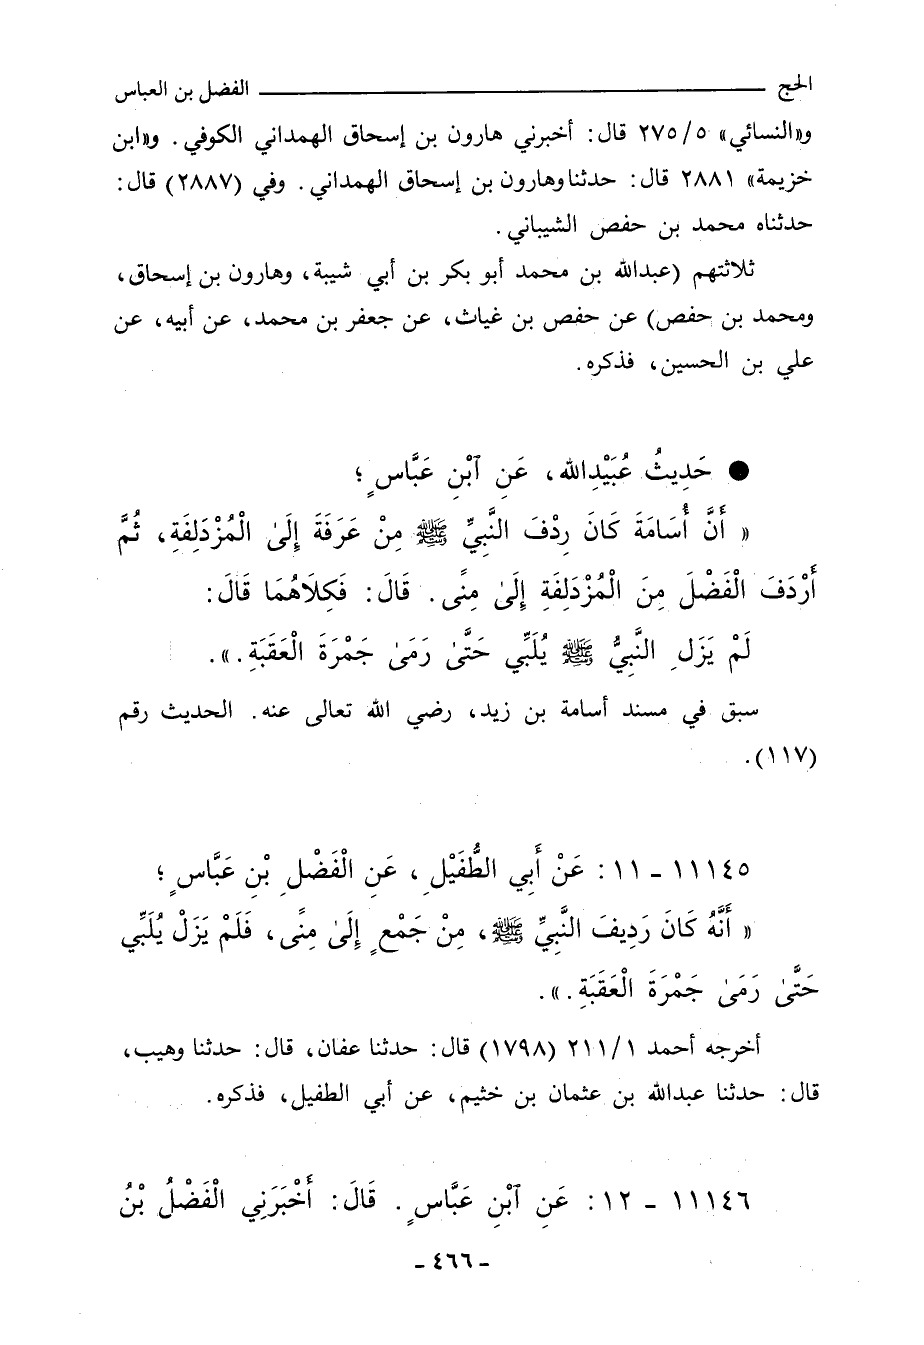 الحج ــــــــــــــــــــــــــــ الفضل بن العباس
و«النسائي» ٢٧٥/٥ قال: أخبرني هارون بن إسحاق الهمداني الكوفي. و«ابن
خزيمة» ٢٨٨١ قال: حدثنا وهارون بن إسحاق الهمداني. وفي (٢٨٨٧) قال:
حدثناه محمد بن حفص الشيباني.
ثلاثتهم (عبدالله بن محمد أبو بكر بن أبي شيبة، وهارون بن إسحاق،
ومحمد بن حفص) عن حفص بن غياث، عن جعفر بن محمد، عن أبيه، عن
علي بن الحسين، فذكره.
● حَدِيثُ عُبَيْدِاللهِ، عَنِ ٱبْنِ عَبَّاسٍ؛
« أَنَّ أُسَامَةَ كَانَ رِدْفَ النَّبِيِّ ﷺ مِنْ عَرَفَةَ إِلَىٰ الْمُزْدَلِفَةِ، ثُمَّ
أَرْدَفَ الْفَضْلَ مِنَ الْمُزْدَلِفَةِ إِلَىٰ مِنًى. قَالَ: فَكِلَاهُمَا قَالَ:
لَمْ يَزَلِ النَّبِيُّ ﷺ يُلَبِّي حَتَّىٰ رَمَىٰ جَمْرَةَ الْعَقَبَةِ.».
سبق في مسند أسامة بن زيد، رضي الله تعالى عنه. الحديث رقم
(١١٧).
١١١٤٥ - ١١: عَنْ أَبِي الطُّفَيْلِ، عَنِ الْفَضْلِ بْنِ عَبَّاسٍ؛
« أَنَّهُ كَانَ رَدِيفَ النَّبِيِّ ﷺ، مِنْ جَمْعٍ إِلَىٰ مِنًى، فَلَمْ يَزَلْ يُلَبِّي
حَتَّىٰ رَمَىٰ جَمْرَةَ الْعَقَبَةِ.».
أخرجه أحمد ٢١١/١ (١٧٩٨) قال: حدثنا عفان، قال: حدثنا وهيب،
قال: حدثنا عبدالله بن عثمان بن خثيم، عن أبي الطفيل، فذكره.
١١١٤٦ - ١٢: عَنِ ٱبْنِ عَبَّاسٍ. قَالَ: أَخْبَرَنِي الْفَضْلُ بْنُ
- ٤٦٦ -